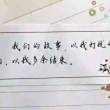 我们的故事，以我打扰
，以我多余结束。